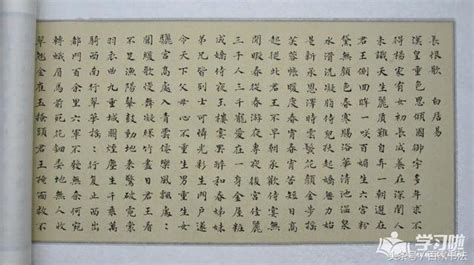 長恨歌 白居易
漢皇重色思傾國御宇多年求不
得楊家有女初長成養在深閨人
未識天生麗質難自棄一朝選在
君王側回眸一咲百媚生六宮粉
黛無顏色春寒賜浴華清池溫泉
水滑洗凝脂侍兒扶起嬌無力始
是新承恩澤時雲鬢花顏金步搖
芙蓉帳暖度春宵春宵苦短日高
起從此君王不早朝承歡侍宴無
閒暇春從春遊夜專夜後宮佳麗
三千人三千寵愛在一身金屋粧
成嬌侍夜玉樓宴罷醉和春姊妹
弟兄皆列士可憐光彩生門戶遂
令天下父母心不重生男重生女
驪宮高處入青雲仙樂風飄處〻
聞緩歌慢舞凝絲竹盡日君王看
不足漁陽鼙鼓動地來驚破霓裳
羽衣曲九重城闕煙塵生千乘萬
騎西南行翠華搖〻行復止西出
都門百餘里六軍不發無奈何宛
轉蛾眉馬前死花鈿委地無人收
翠翹金雀玉搔頭君王掩面救不
学习啦